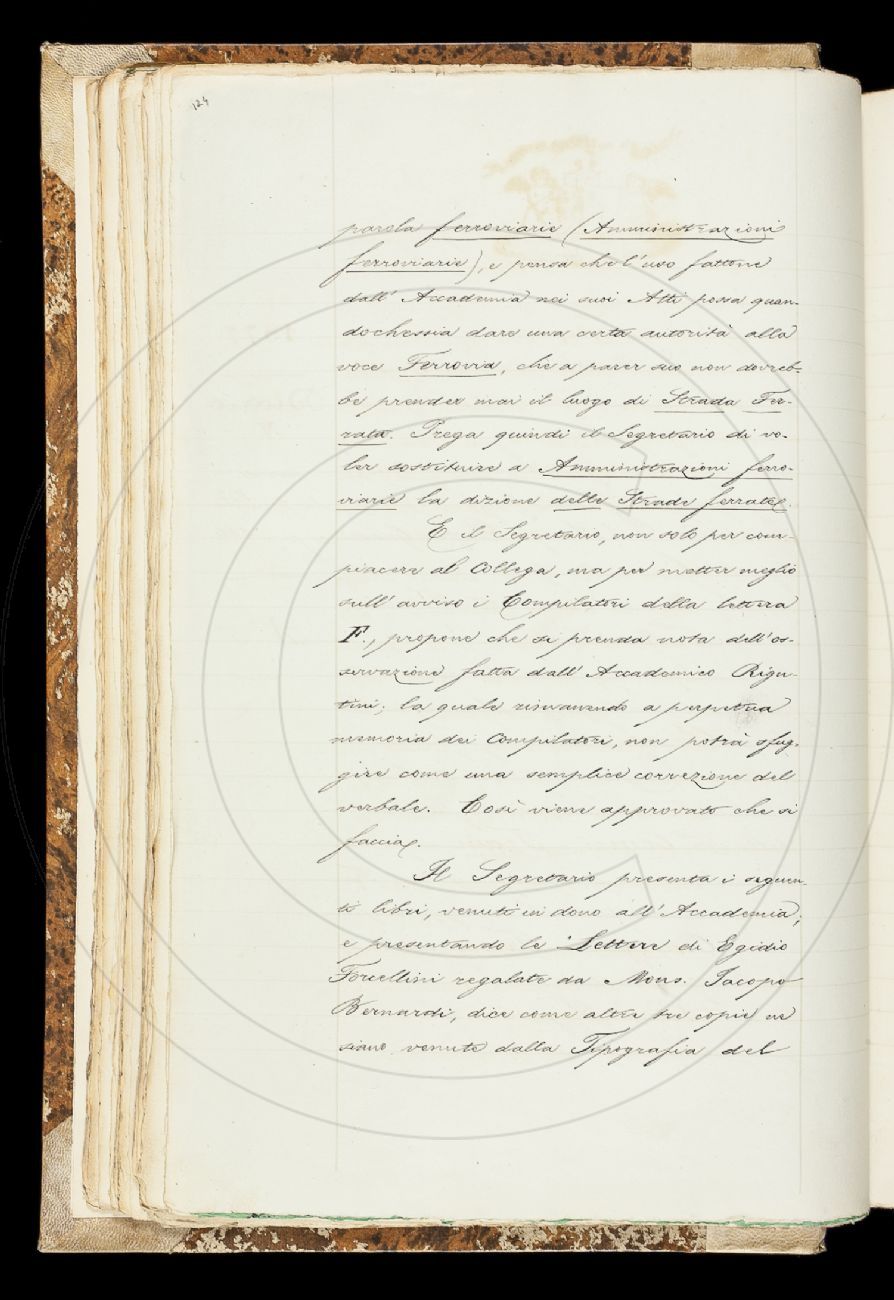 124
parola ferroviarie (Amministrazioni
ferroviarie), e pensa che l'uso fattone
dall' Accademia nei suoi Atti possa quan-
dochessia dare una certa autorità alla
voce Ferrovia, che a parer suo non dovreb-
be prender mai il luogo di Strada Fer-
rata. Prega quindi il Segretario di vo-
ler sostituire a Amministrazioni ferro-
viarie la dizione delle Strade ferrate.
E il Segretario, non solo per com-
piacere al Collega, ma per metter meglio
sull' avviso i Compilatori della lettera
F., propone che si prenda nota dell' os-
servazione fatta dall' Accademico Rigu-
tini; la quale rimanendo a perpetua
memoria dei Compilatori, non potrà sfug-
gire come una semplice correzione del
verbale. Così viene approvato che si
faccia.
Il Segretario presenta i seguen-
ti libri, venuti in dono all' Accademia;
e presentando le Lettere di Egidio
Forcellini regalate da Mons. Jacopo
Bernardi, dice come altre tre copie ne
siano venute dalla Tipografia del